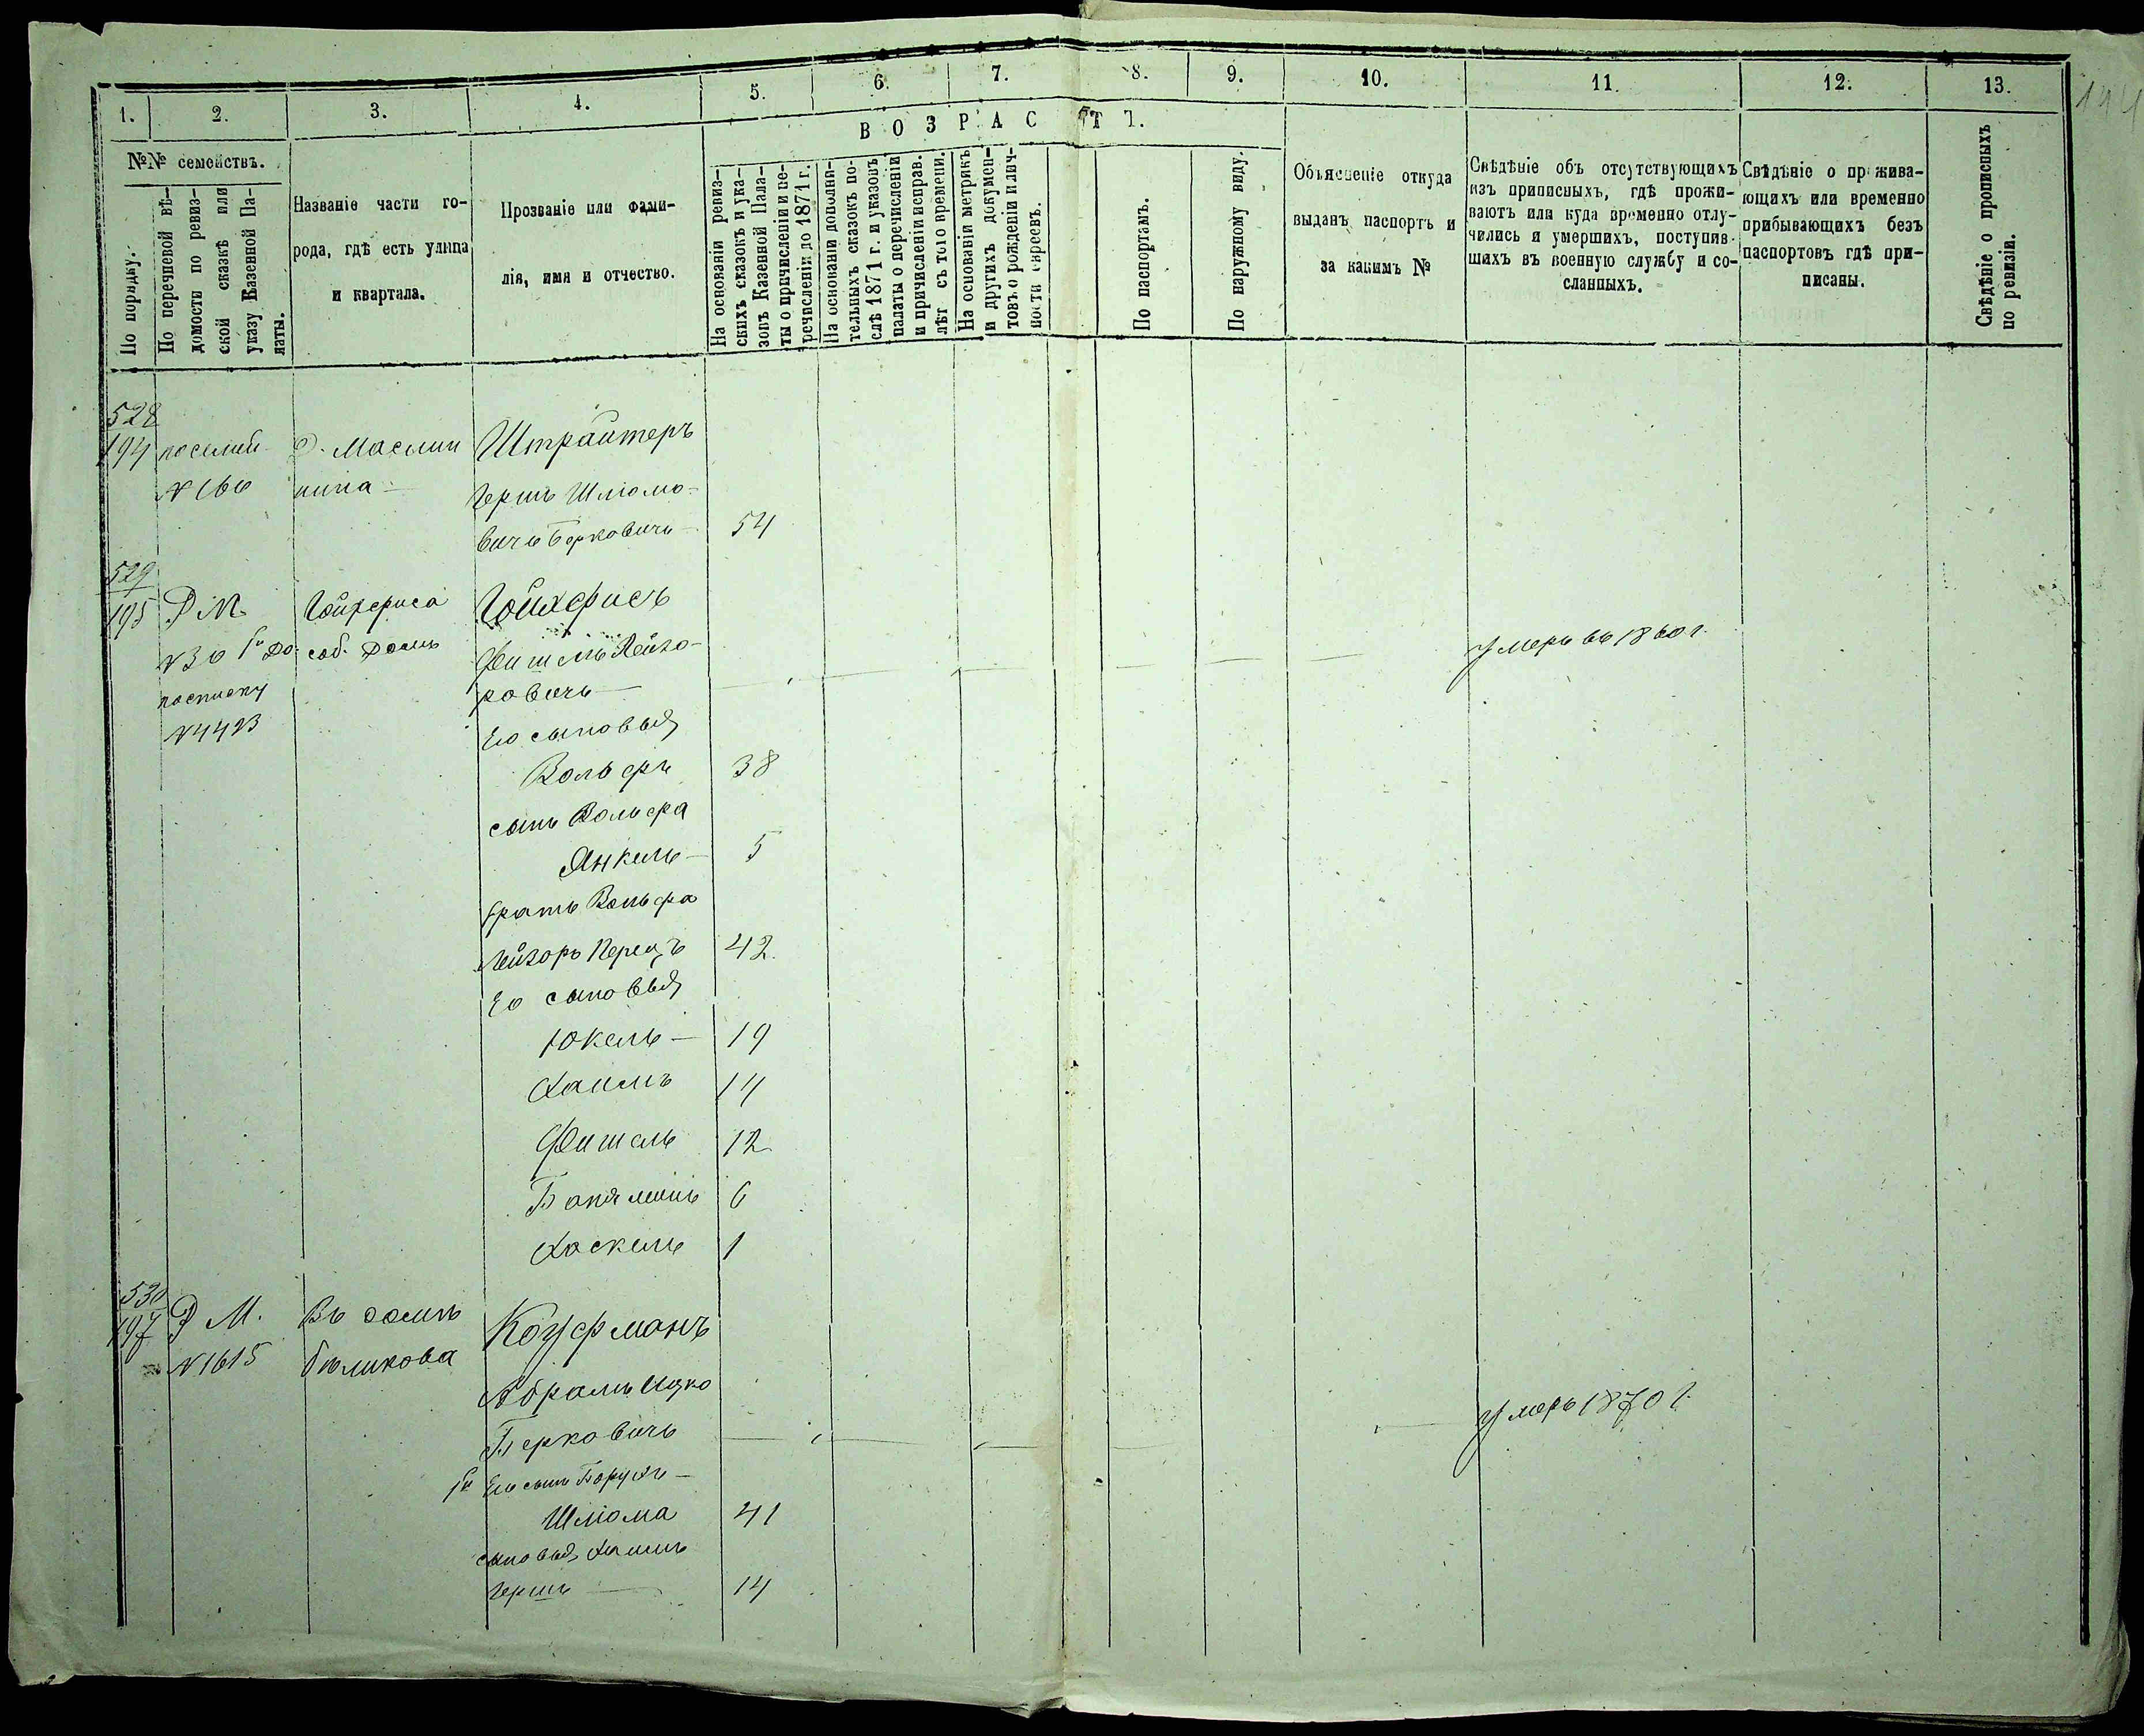 1. 2. 3. 4. 5. 6. 7. 8. 9. 10. 11. 12. 13.
№№ семействъ.
По порядку.
По перечневой вѣ-
домости по ревиз-
ской сказкѣ или
указу Казенной Па-
латы.
Названіе части го-
рода, гдѣ есть улица
и квартала.
Прозваніе или фами-
лія, имя и отчество.
ВОЗРАСТЪ.
На основаніи ревиз-
скихъ сказокъ и ука-
зовъ Казенной Пала-
ты о причисленіи и пе-
речисленіи до 1871 г.
На основаніи дополни-
тельныхъ сказокъ по-
слѣ 1871 г. и указовъ
палаты о перечисленіи
и причисленіи исправ.
лѣт съ того времени.
На основаніи метрикъ
и другихъ докумен-
товъ о рожденіи и лич-
ности евреевъ.
По паспортамъ.
По наружному виду.
Объясненіе откуда
выданъ паспортъ и
за какимъ №
Свѣдѣніе объ отсутствующихъ
изъ приписныхъ, гдѣ прожи-
ваютъ или куда временно отлу-
чились и умершихъ, поступив-
шихъ въ военную службу и со-
сланныхъ.
Свѣдѣніе о прожива-
ющихъ или временно
прибывающихъ безъ
паспортовъ гдѣ при-
писаны.
Свѣдѣніе о прописныхъ
по ревизіи.
528
194 Д. Маслян Штрайтеръ
№ 166 Гершъ Шлiомо-
вичъ Берковичъ 54
529
195 Р М. Гойхфиса Гойхфисъ
№30 соб. домъ Фишель Лейзо- Умеръ въ 1860 г.
ровичъ
№4423
Его сыновья
Вольфъ 38
сынъ Вольфа
Янкель 5
братъ Вольфа
Лейзоръ Перецъ 42
Его сыновья
Юкель 19
Хаимъ 14
Фишель 12
Бенямин 6
Хаскель 1
530
197 Р М. Въ домѣ Коуфманъ
№1615 Бѣликова
Абрамъ Ицко
Берковичъ Умеръ 1870 г.
Его сынъ Борухъ
Шлiома 41
сыновья Хаимъ
Гершъ 14